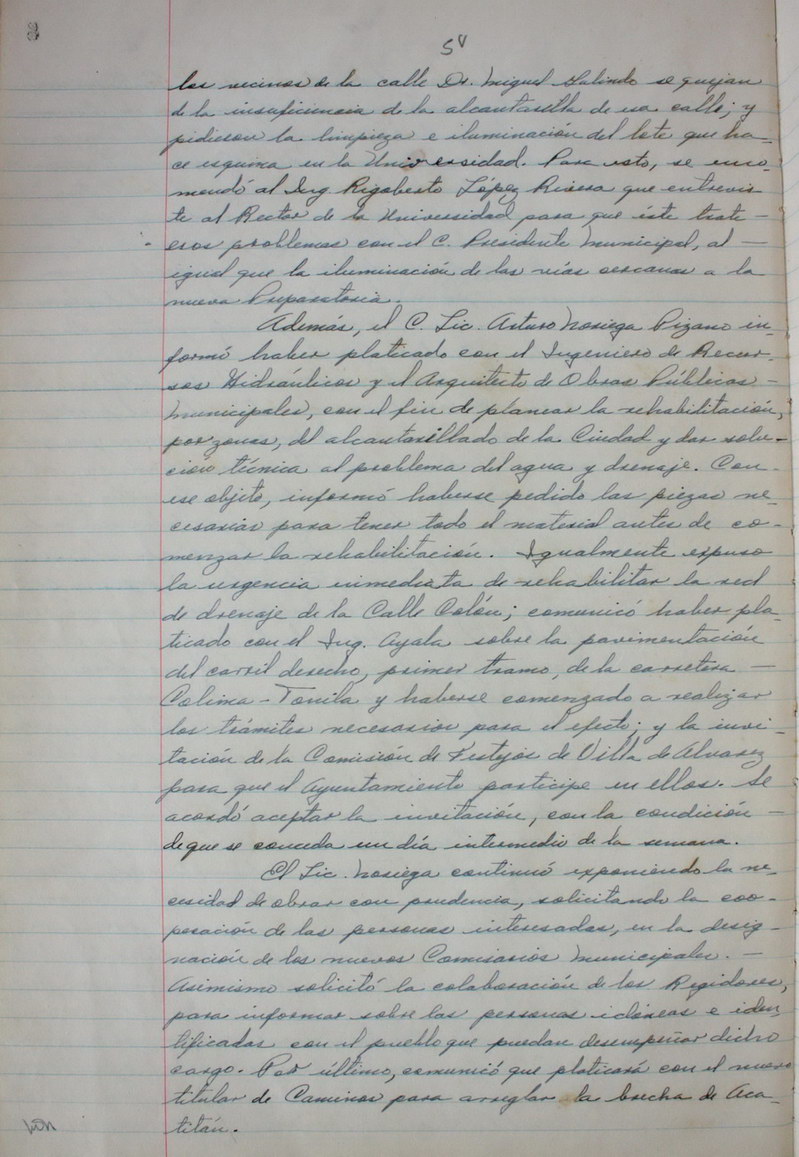 5v
los vecinos de la calle Dr. Miguel Galindo se quejan
de la insuficiencia de la alcantarilla de esa calle; y
pidieron la limpieza e iluminación del lote que ha-
ce esquina en la Universidad. Para esto, se enco-
mendó al Ing. Rigoberto López Rivera que entrevis-
te al Rector de la Universidad para que éste trate —
esos problemas con el C. Presidente Municipal, al —
igual que la iluminación de las vías cercanas a la
nueva Preparatoria.
Además, el C. Lic. Arturo Noriega Pizano in-
formó haber platicado con el Ingeniero de Recur-
sos Hidráulicos y el Arquitecto de Obras Públicas —
Municipales, con el fin de planear la rehabilitación,
por zonas, del alcantarillado de la Ciudad y dar solu-
ción técnica al problema del agua y drenaje. Con
ese objeto, informó haberse pedido las piezas ne-
cesarias para tener todo el material antes de co-
menzar la rehabilitación. Igualmente expuso
la urgencia inmediata de rehabilitar la red
de drenaje de la Calle Colón; comunicó haber pla-
ticado con el Ing. Ayala sobre la pavimentación
del carril derecho, primer tramo, de la carretera —
Colima - Tonila y haberse comenzado a realizar
los trámites necesarios para el efecto; y la invi-
tación de la Comisión de Festejos de Villa de Alvarez
para que el Ayuntamiento participe en ellos. Se
acordó aceptar la invitación, con la condición —
de que se conceda un día intermedio de la semana.
El Lic. Noriega continuó exponiendo la ne-
cesidad de obrar con prudencia, solicitando la coo-
peración de las personas interesadas, en la desig-
nación de los nuevos Comisarios Municipales. —
Asimismo solicitó la colaboración de los Regidores,
para informar sobre las personas idóneas e iden-
tificadas con el pueblo que puedan desempeñar dicho
cargo. Por último, comunicó que platicará con el nuevo
titular de Caminos para arreglar la brecha de Aca-
titán.